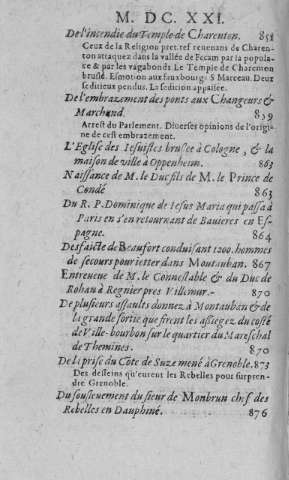 M. DC. XXI.
De l'incendie du Temple de Charenton. 851
Ceux de la Religion pret. ref reuenans de Charen-
ton attaquez dans la vallée de Fecam par la popula-
ce & par les vagabonds Le Temple de Charenton
bruslé. Esmotion aux faux bourgs S Marceau. Deux
seditieux pendus. La sedition appaisee.
De l'embrazement des ponts aux Changeurs &
Marchand. 859
Arrest du Parlement. Diuerses opinions de l'origi-
ne de cest embrazement.
L'Eglise des Iesuistes bruslee à Cologne, & la
maison de ville à Oppenheim. 863
Naissance de M. le Duc fils de M. le Prince de
Condé 863
Du R. P. Dominique de Iesus Maria qui passa à
Paris en s'en retournant de Bauieres en Es-
pagne. 864
Desfaicte de Beaufort conduisant 1200. hommes
de secours pour ietter dans Montauban. 867
Entreueue de M. le Connestable & du Duc de
Rohan à Regnier pres Villemur. 870
De plusieurs assaults donnez à Montauban & de
la grande sortie que firent les assiegez du costé
de Ville-bourbon sur le quartier du Mareschal
de Themines. 870
De la prise du Cote de Suze mené à Grenoble. 873
Des desseins qu'eurent les Rebelles pour surpren-
dre Grenoble.
Du sousleuement du sieur de Monbrun chef des
Rebelles en Dauphiné. 876